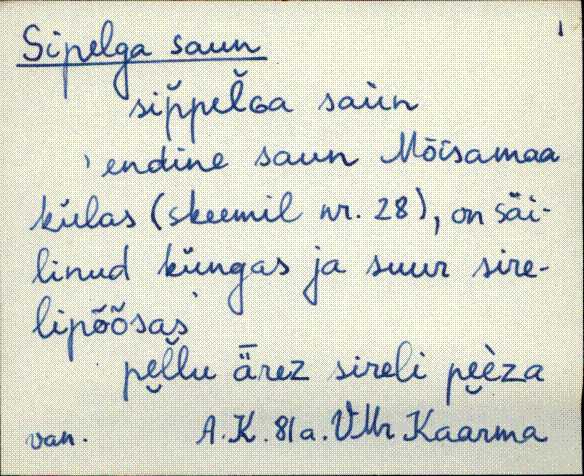 1
Sipelga saun
sip̆pel̆Ga saùn
'endine saun Mõisamaa
külas (skeemil nr. 28), on säi-
linud küngas ja suur sire-
lipõõsas'
pel̆lu ärez sireli peèza
van. A.K. 81a. VMr Kaarma